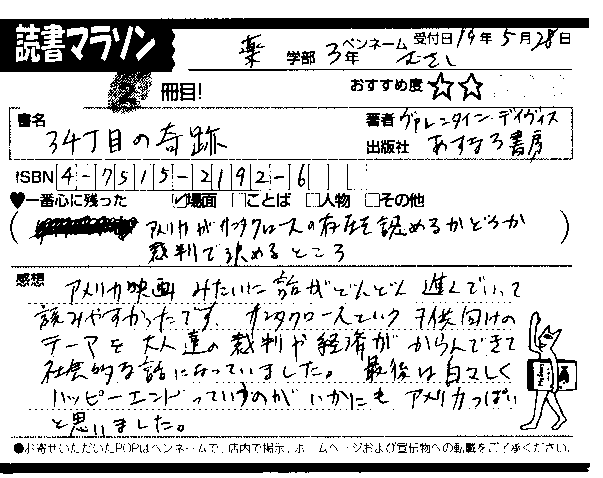 読書マラソン
薬 学部 3年 ペンネーム むさし 受付日 19年 5月 28日
2 冊目! おすすめ度 ☆☆
書名 34丁目の奇跡
著者 ヴァレンタイン・デイヴィス
出版社 あすなろ書房
ISBN 4-7515-2192-6
♥一番心に残った ☑場面 □ことば □人物 □その他
(アメリカがサンタクロースの存在を認めるかどうか
裁判で決めるところ)
感想 アメリカ映画みたいに話がどんどん進んでいって
読みやすかったです。サンタクロースという子供向けの
テーマを大人達の裁判や経済がからんできて
社会的な話になっていました。最後は白々しく
ハッピーエンドっていうのがいかにもアメリカっぽい
と思いました。
●お寄せいただいたPOPはペンネームで、店内で掲示、ホームページおよび宣伝物への転載をご了承ください。